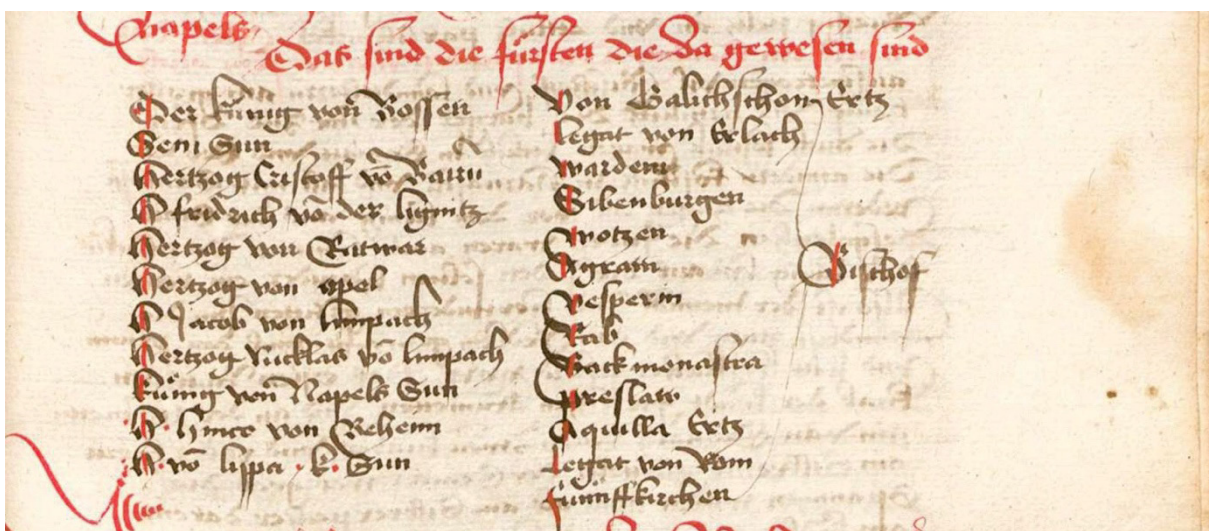 Napels
Das sind die fürsten die da gewesen sind
Der künig von Bossen
Sein Sun
Hertzog Cristoff vō Bairn
H fridrich vō der lignitz
Hertzog von Ratwar
Hertzog von opel
H Jacob von limpach
Hertzog Nicklas vō limpach
künig von Napels Sun
H. hinco von Behem
H. vō lippa . k . Sun
Von Galitschon Ertz
legat von Erlach
wardein
Sibenburgen
wotzen
Agram
vesperin
Rab
Back monastra
preslaw
Aquilla Ertz
legat von Rom
fünffkirchen
Bischof